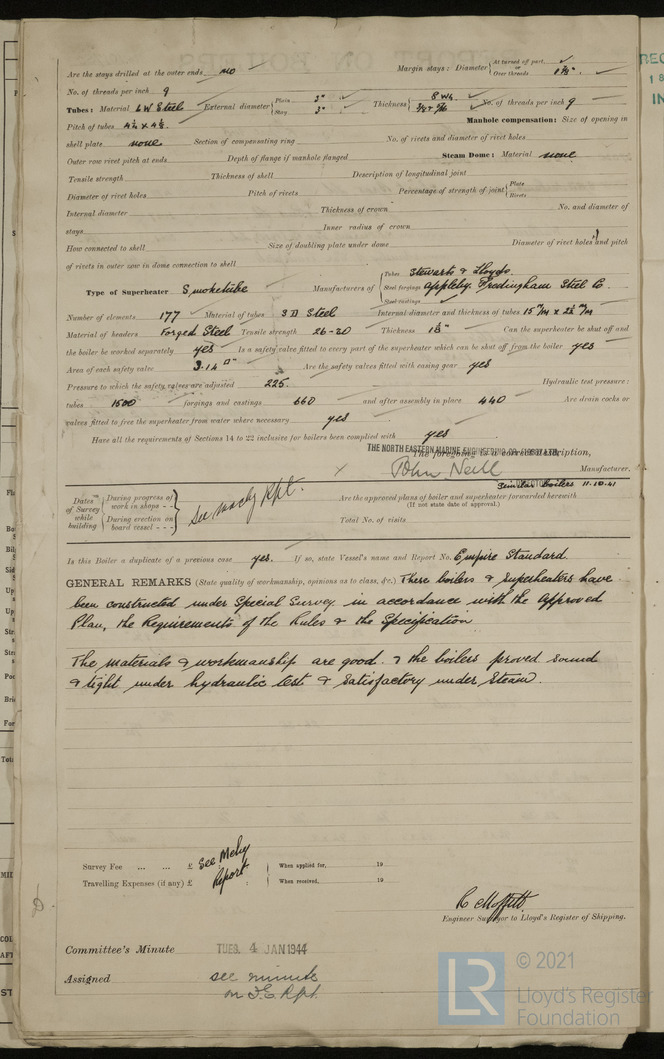 Are the stays drilled at the outer ends no Margin stays: Diameter { At turned off part, or Over threads 1 7/8".
No. of threads per inch 9
Tubes: Material L W Steel External diameter { Plain 3" Stay 3" Thickness { 8 WG. No. of threads per inch 9
Pitch of tubes Manhole compensation: Size of opening in
shell plate none Section of compensating ring No. of rivets and diameter of rivet holes
Outer row rivet pitch at ends Depth of flange if manhole flanged Steam Dome: Material none
Tensile strength Thickness of shell Description of longitudinal joint
Diameter of rivet holes Pitch of rivets Percentage of strength of joint { Plate Rivets
Internal diameter Thickness of crown No. and diameter of
stays Inner radius of crown
How connected to shell Size of doubling plate under dome Diameter of rivet holes and pitch
of rivets in outer row in dome connection to shell
Type of Superheater Smoketube Manufacturers of { Tubes Stewarts & Lloyds
Steel forgings Appleby Frodingham Steel Co.
Steel castings
Number of elements 177 Material of tubes S D Steel Internal diameter and thickness of tubes 15 m/m x 2½ m/m
Material of headers Forged Steel Tensile strength 26-30 Thickness Can the superheater be shut off and
the boiler be worked separately yes Is a safety valve fitted to every part of the superheater which can be shut off from the boiler yes
Area of each safety valve 3.14 □" Are the safety valves fitted with easing gear yes
Pressure to which the safety valves are adjusted 225. Hydraulic test pressure:
tubes 1500 forgings and castings 660 and after assembly in place 440 Are drain cocks or
valves fitted to free the superheater from water where necessary yes
Have all the requirements of Sections 14 to 22 inclusive for boilers been complied with yes
The foregoing is a correct description,
THE NORTH EASTERN MARINE ENGINEERING CO.
x John Neill Manufacturer.
Dates of Survey while building { During progress of work in shops - - During erection on board vessel - - - } See Machy Rpt.
Similar Boilers 11.10.41
Are the approved plans of boiler and superheater forwarded herewith
(If not state date of approval.)
Total No. of visits
Is this Boiler a duplicate of a previous case yes. If so, state Vessel's name and Report No. Empire Standard
GENERAL REMARKS (State quality of workmanship, opinions as to class, &c.) These boilers & Superheaters have
been constructed under Special Survey in accordance with the Approved
Plan, the Requirements of the Rules & the Specification
The materials & workmanship are good. & the boilers proved sound
& tight under hydraulic test & Satisfactory under Steam.
Survey Fee ... ... £ See Mchy Report When applied for, 19
Travelling Expenses (if any) £ When received, 19
R Moffitt
Engineer Surveyor to Lloyd's Register of Shipping.
Committee's Minute TUES. 4 JAN 1944
Assigned see minute
on F.E. Rpt.
LR © 2021
Lloyd's Register
Foundation